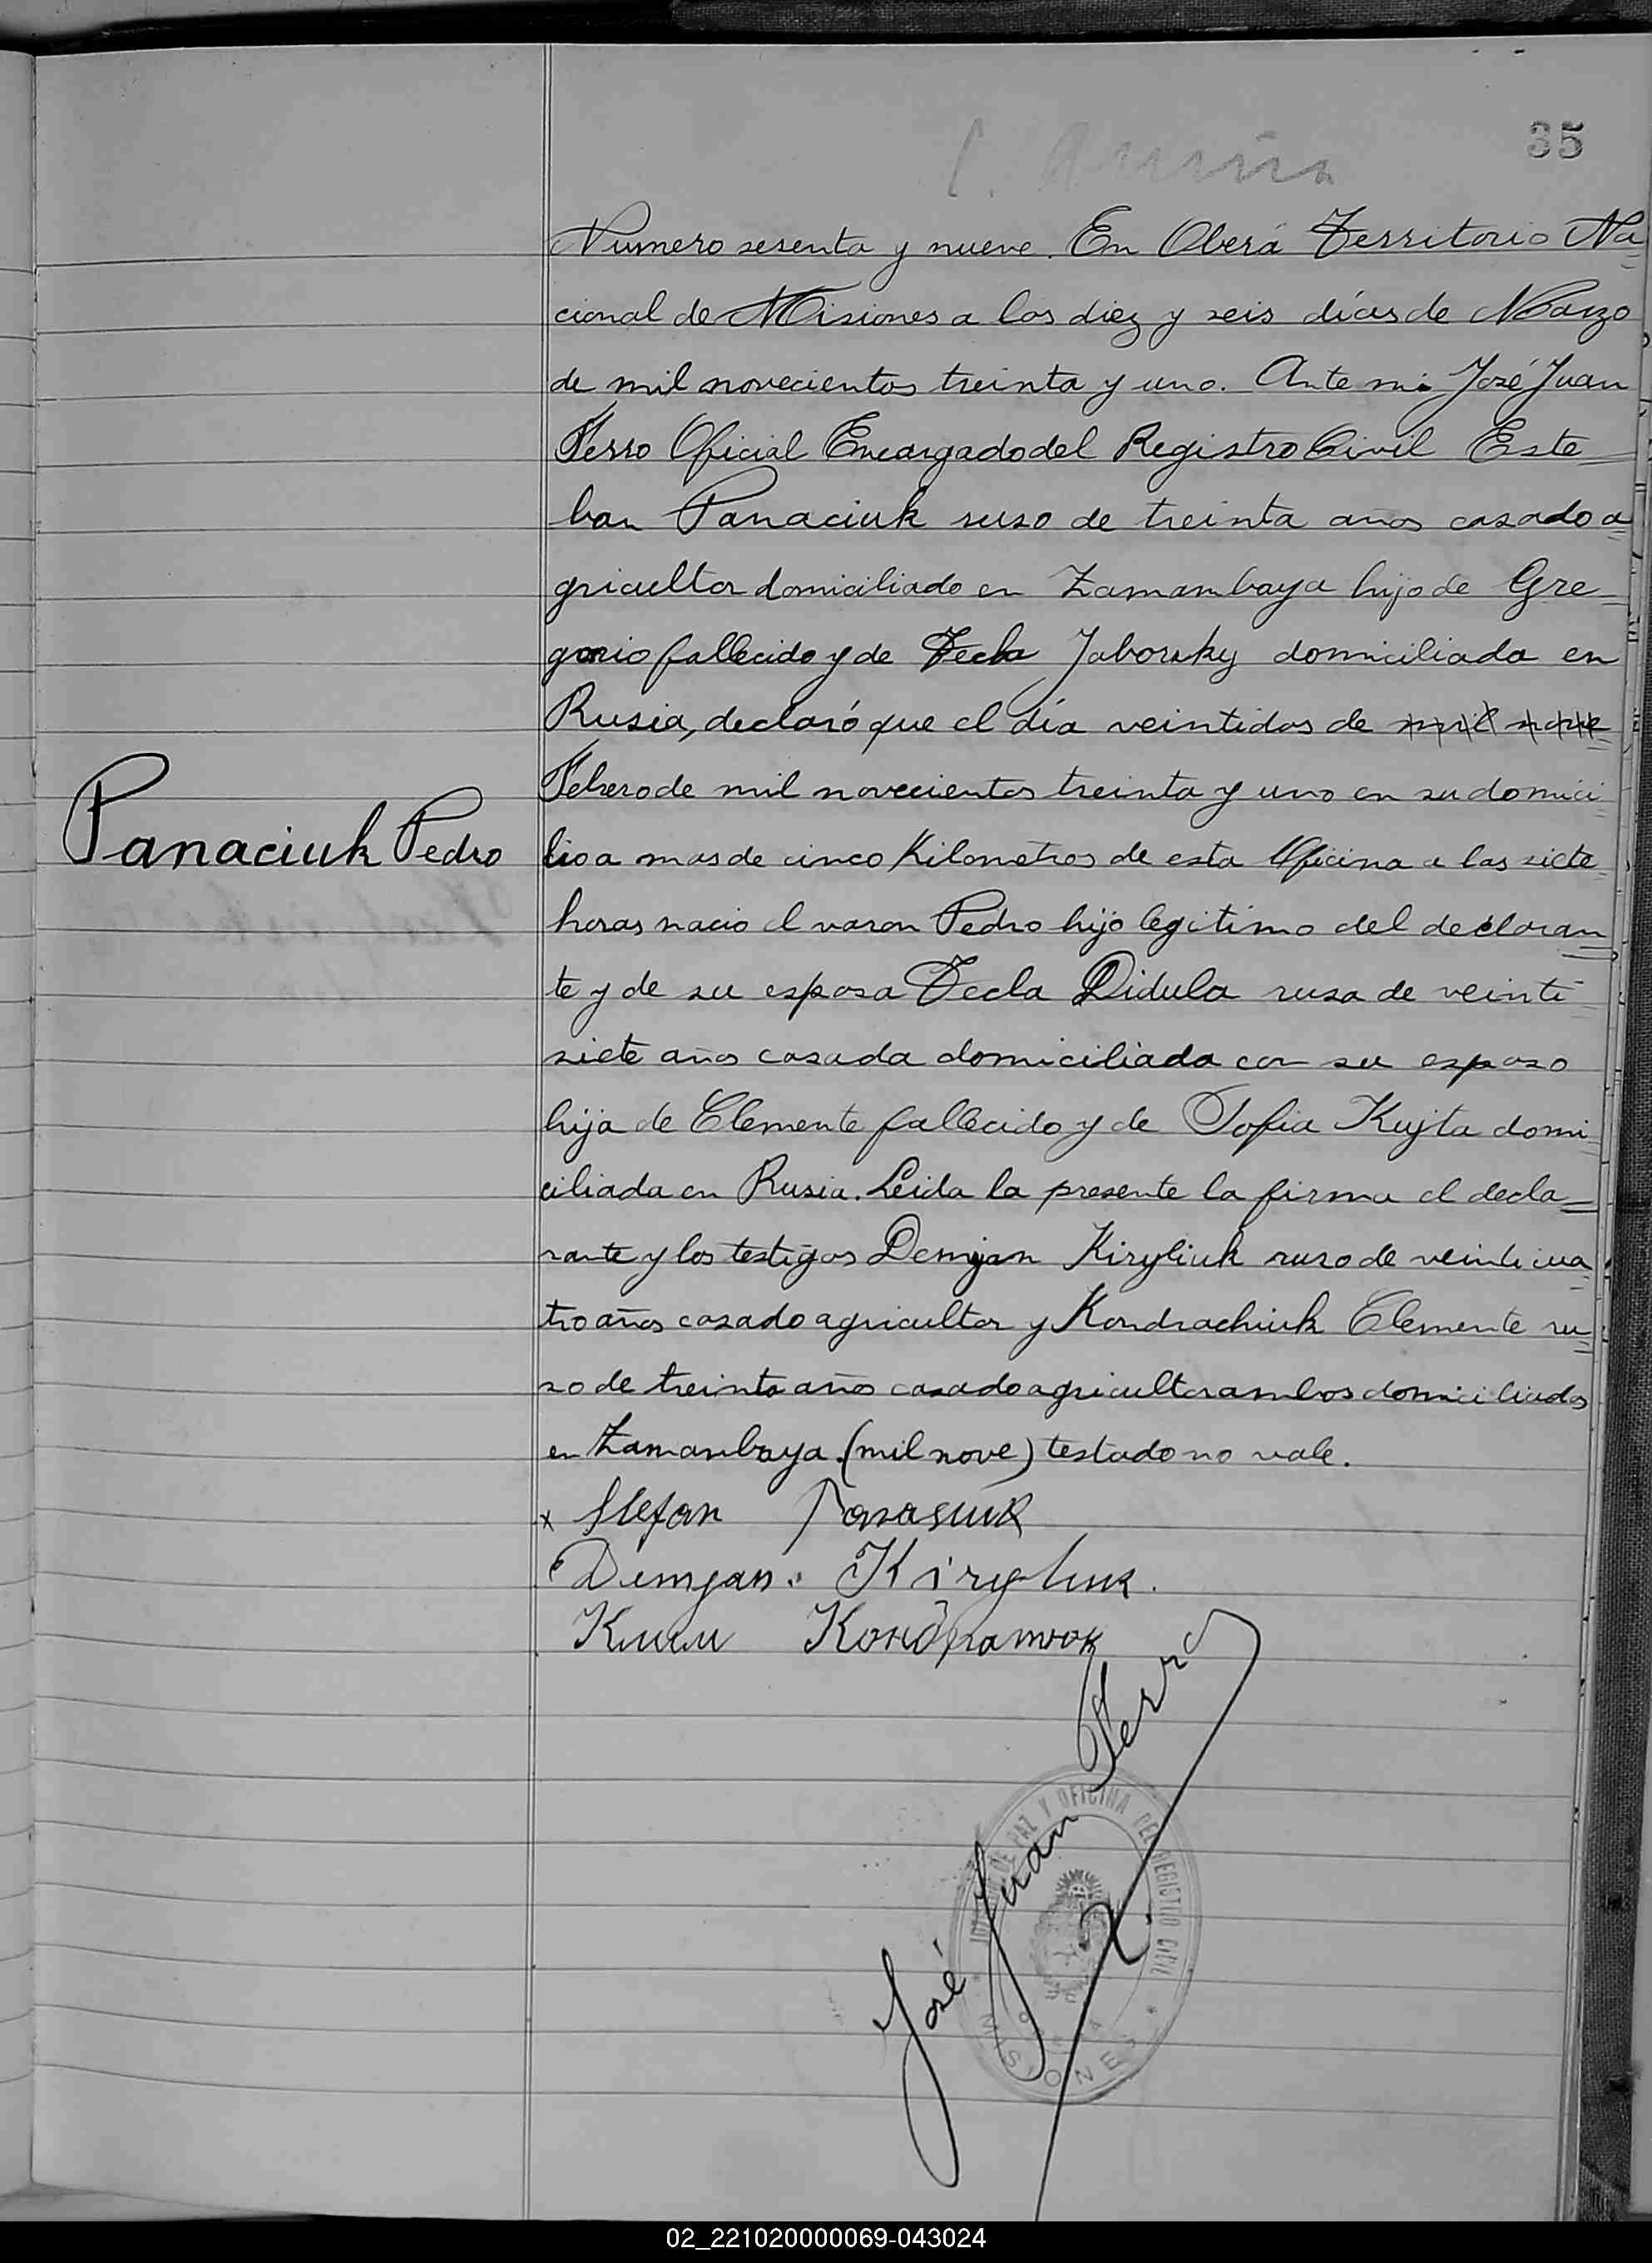 35
Numero sesenta y nueve. En Oberá Territorio Na
cional de Misiones a los diez y seis días de Marzo
de mil novecientos treinta y uno. Ante mi José Juan
Ferro Oficial Encargado del Registro Civil Este
ban Panaciuk ruso de treinta años casado a
gricultor domiciliado en Zamambaya hijo de Gre
gorio fallecido y de Tecla Jaborsky domiciliada en
Rusia, declaró que el día veintidos de mil nove
Febrero de mil novecientos treinta y uno en su domici
Panaciuk Pedro
lio a mas de cinco Kilometros de esta Oficina a las siete
horas nacio el varon Pedro hijo legitimo del declaran
te y de su esposa Tecla Didula rusa de veinti
siete años casada domiciliada con su esposo
hija de Clemente fallecido y de Sofia Kujta domi
ciliada en Rusia. Leida la presente la firma el decla
rante y los testigos Demjan Kiryliuk ruso de veinticua
tro años casado agricultor y Kondrachiuk Clemente ru
so de treinta años casado agricultor ambos domiciliados
en Zamambaya. (mil nove) testado no vale.
x Stefan Panasiuk
Demjan Kiryluk.
Клим Кондратюк
José Juan Ferro
DE PAZ Y OFICINA DEL REGISTRO CIVIL
MISIONES
02_221020000069-043024